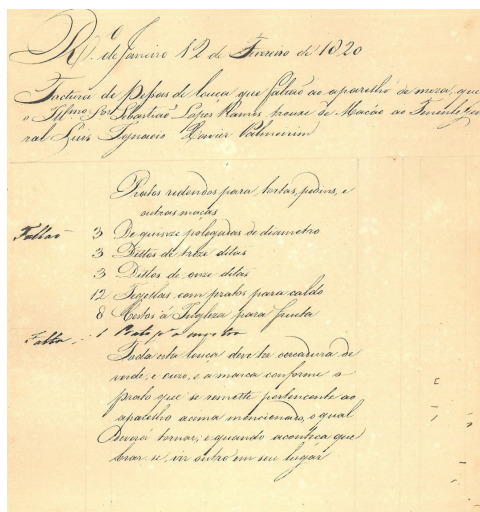 Rio de Janeiro 12 de Fevereiro de 1820
Factura de Pessas de louca que faltão ao apparelho de meza, que
o Illmo Snr Sebastião Lopes Ramos trouxe de Macáo ao Tenente Gen
ral Luis Ignacio Xavier Palmeirim
Pratos redondos para tortas, pudins, e
outras maças
Faltão 3 De quinze polegadas de diametro
3 Dittos de treze ditas
3 Dittos de onze ditas
12 Tegellas com pratos para caldo
8 Cestos á Ingleza para fructa
Falta 1 Prato pa mostra
Toda esta louça deve ter cercadura de
verde, e ouro, e a marca conforme o
prato que se remette pertencente ao
aparelho acima mencionado, o qual
deverá tornar, e quando aconteça que
brar-se, vir outro em seu lugar